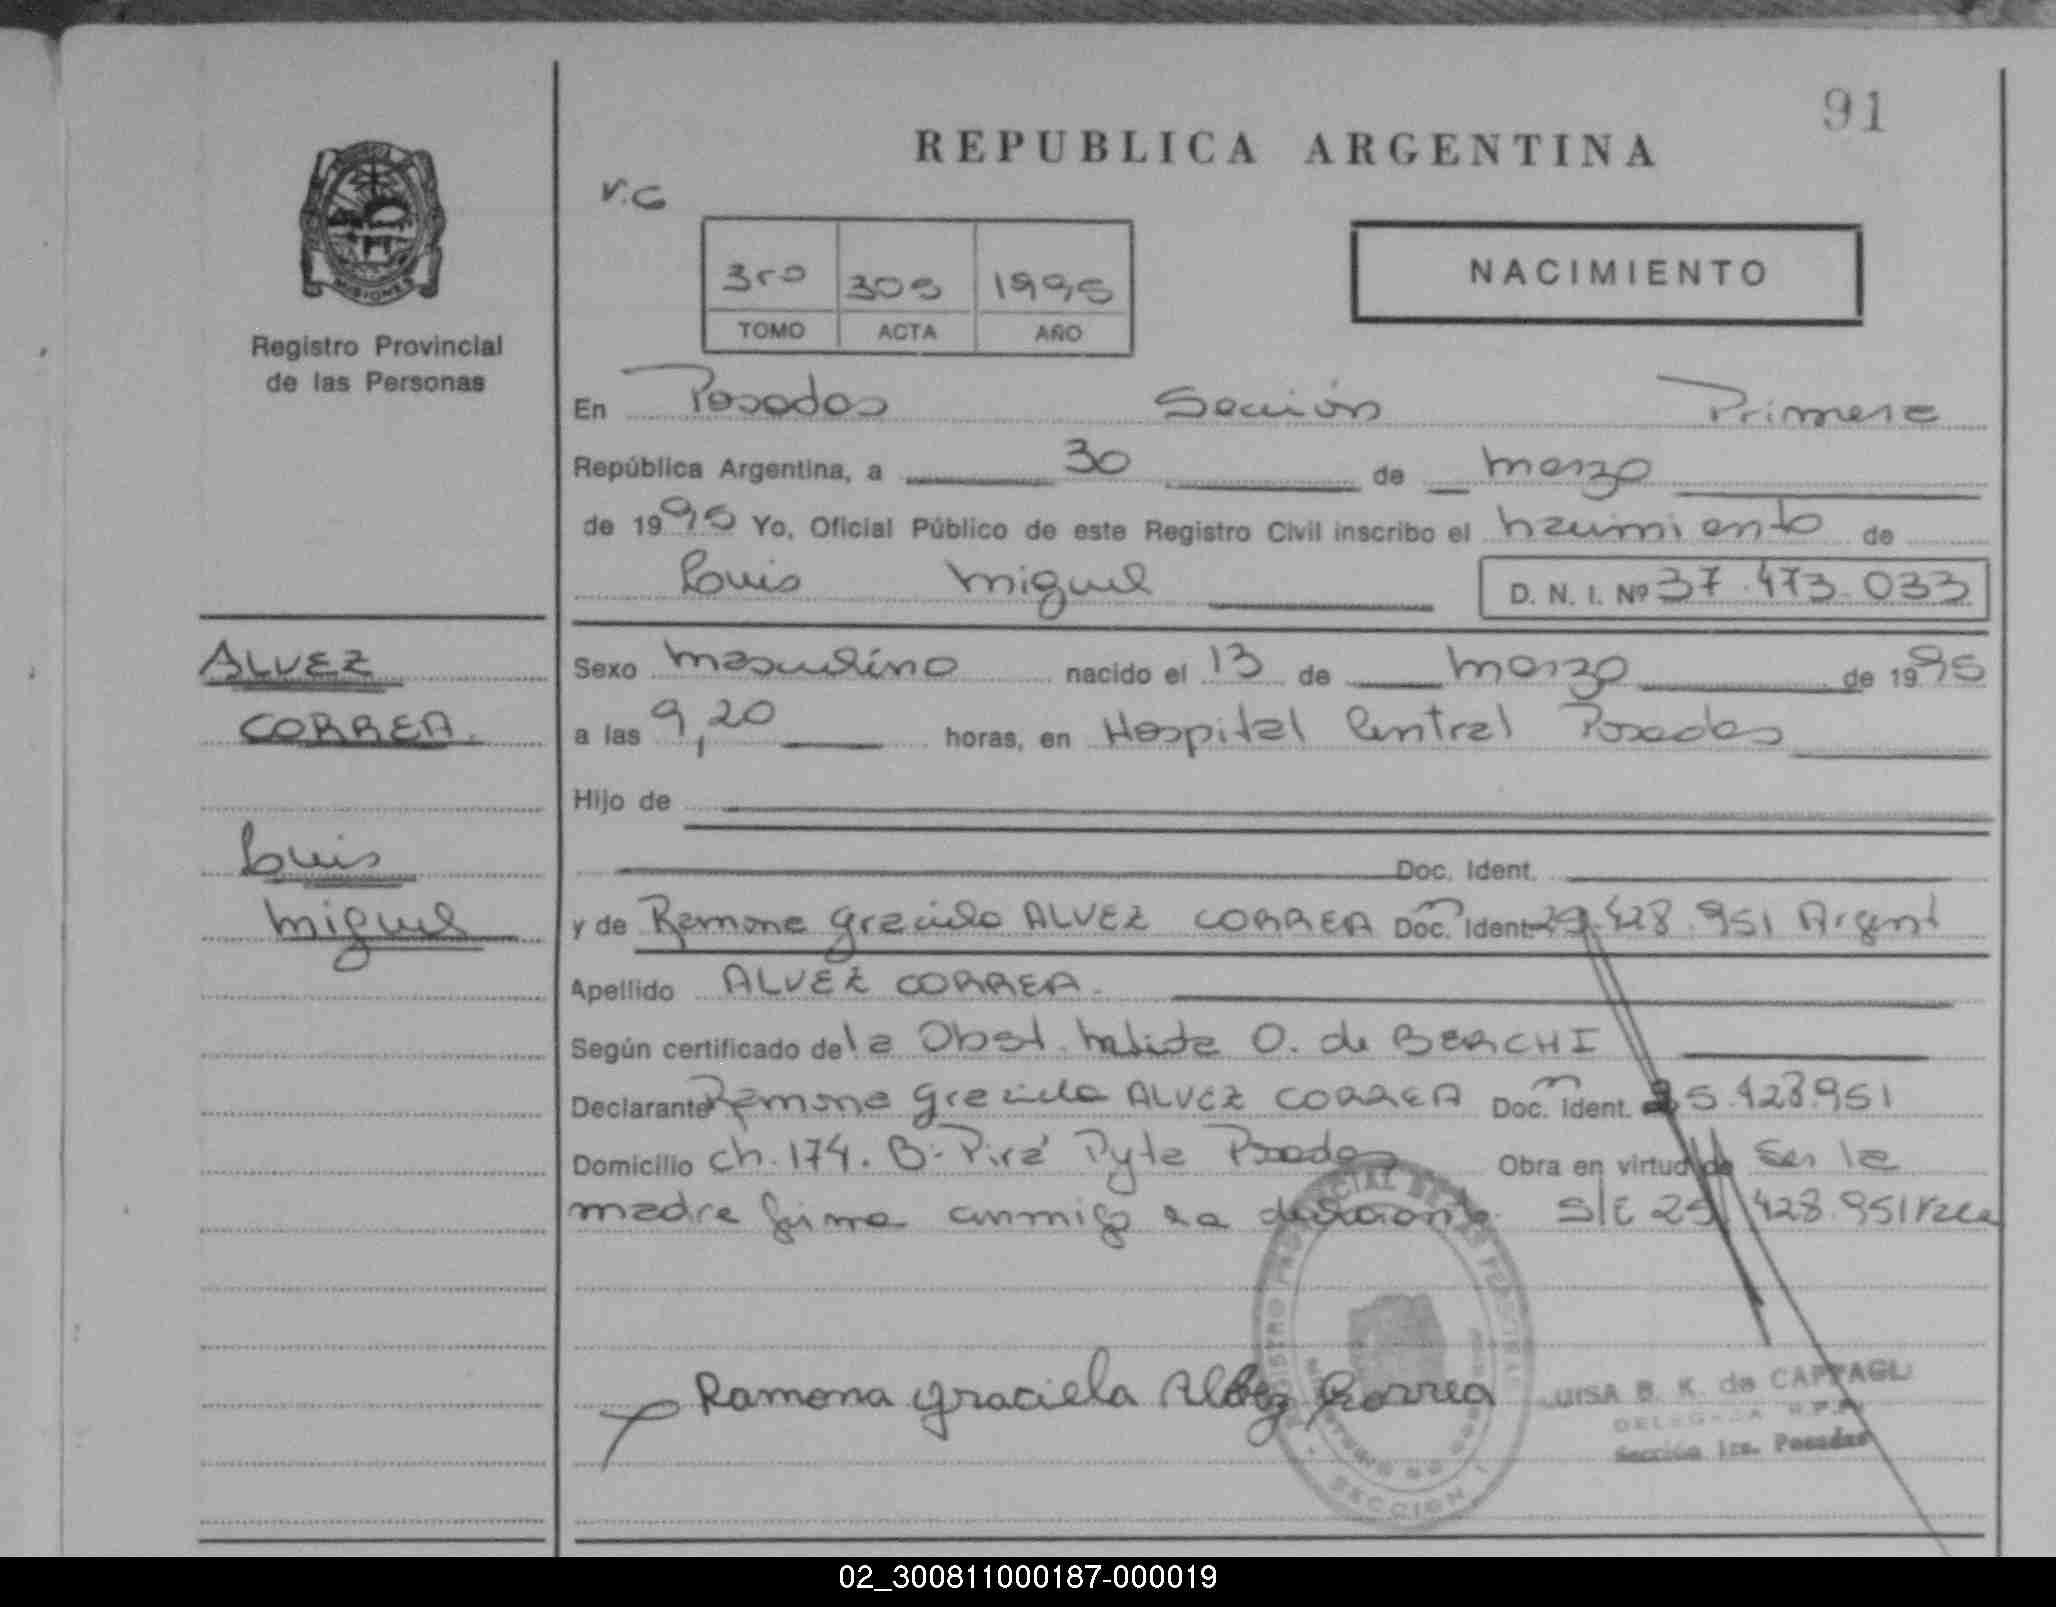 91
REPUBLICA ARGENTINA
V.C
3ro 305 1995
TOMO ACTA AÑO
NACIMIENTO
MISIONES
Registro Provincial
de las Personas
En Posadas Sección Primera
República Argentina, a 30 de marzo
de 1995 Yo, Oficial Público de este Registro Civil inscribo el nacimiento de
Luis Miguel D. N. I. Nº 37.473.033
ALVEZ
CORREA.
Luis
Miguel
Sexo masculino nacido el 13 de marzo de 1995
a las 9,20 horas, en Hospital Central Posadas
Hijo de
Doc. Ident.
y de Ramona Graciela ALVEZ CORREA Doc. Ident 29.428.951 Argent
Apellido ALVEZ CORREA.
Según certificado de la Obst. O. de BERCHI
Declarante Ramona Graciela ALVEZ CORREA Doc. Ident. 5.428.951
Domicilio ch. 174. B: Pirá Pyta Posadas Obra en virtud de Ser la
madre firma conmigo la declarante. S/E 25 428.951 vale
Ramona Graciela Alvez Correa
LUISA B. K. de CAPPAGLI
DELEGADA R.P.P.
Sección 1ra. Posadas
SECCION 1
02_300811000187-000019